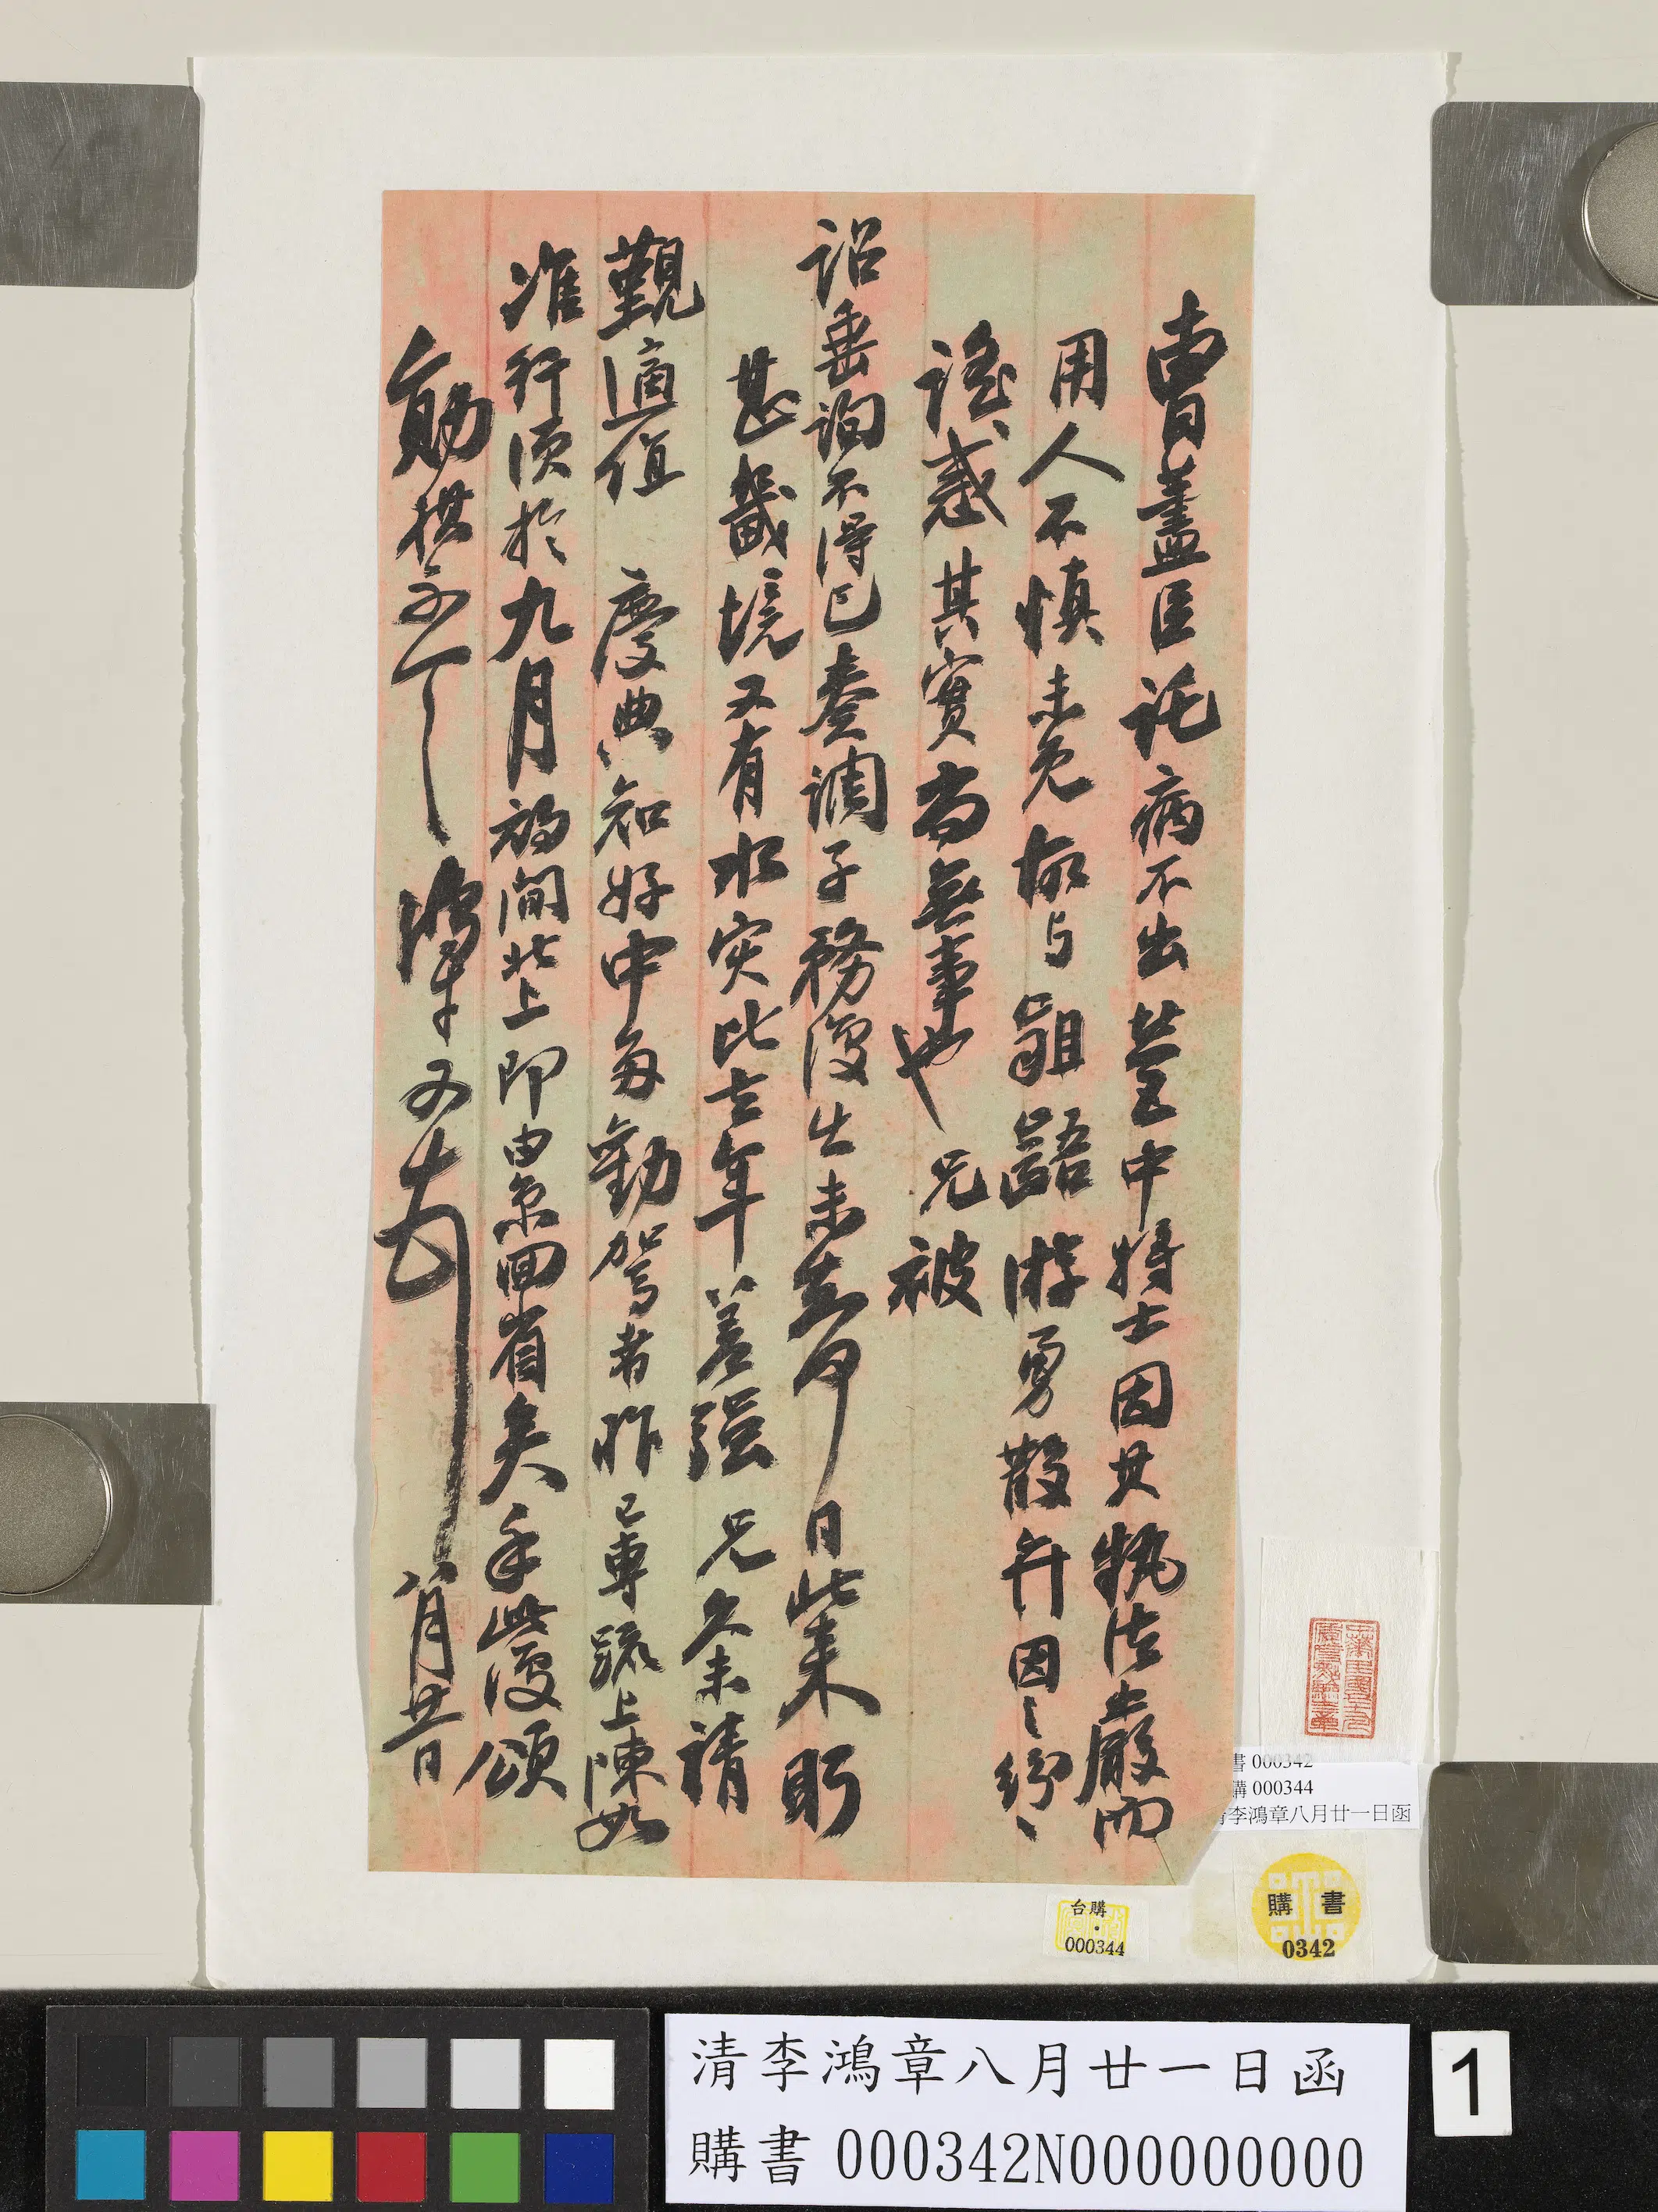 曹藎臣託病不出營中將士因其執法嚴而
用人不慎未免
齟齬游勇散弁因之紛紛
謠惑其實尚無事也兄被
詔垂詢不得已奏調子務復出未知
日此來
甚畿境又有水災比去年差強兄久未請
覲適值 慶典知好中多勸駕者昨已專疏上陳如
准行須於九月初間北上即由京回省矣手此復頌
勛祺不一
鴻章又頓 八月廿一日
書 000342
購 000344
清李鴻章八月廿一日函
台購
000344
購 書
0342
清李鴻章八月廿一日函
購書 000342N000000000
1